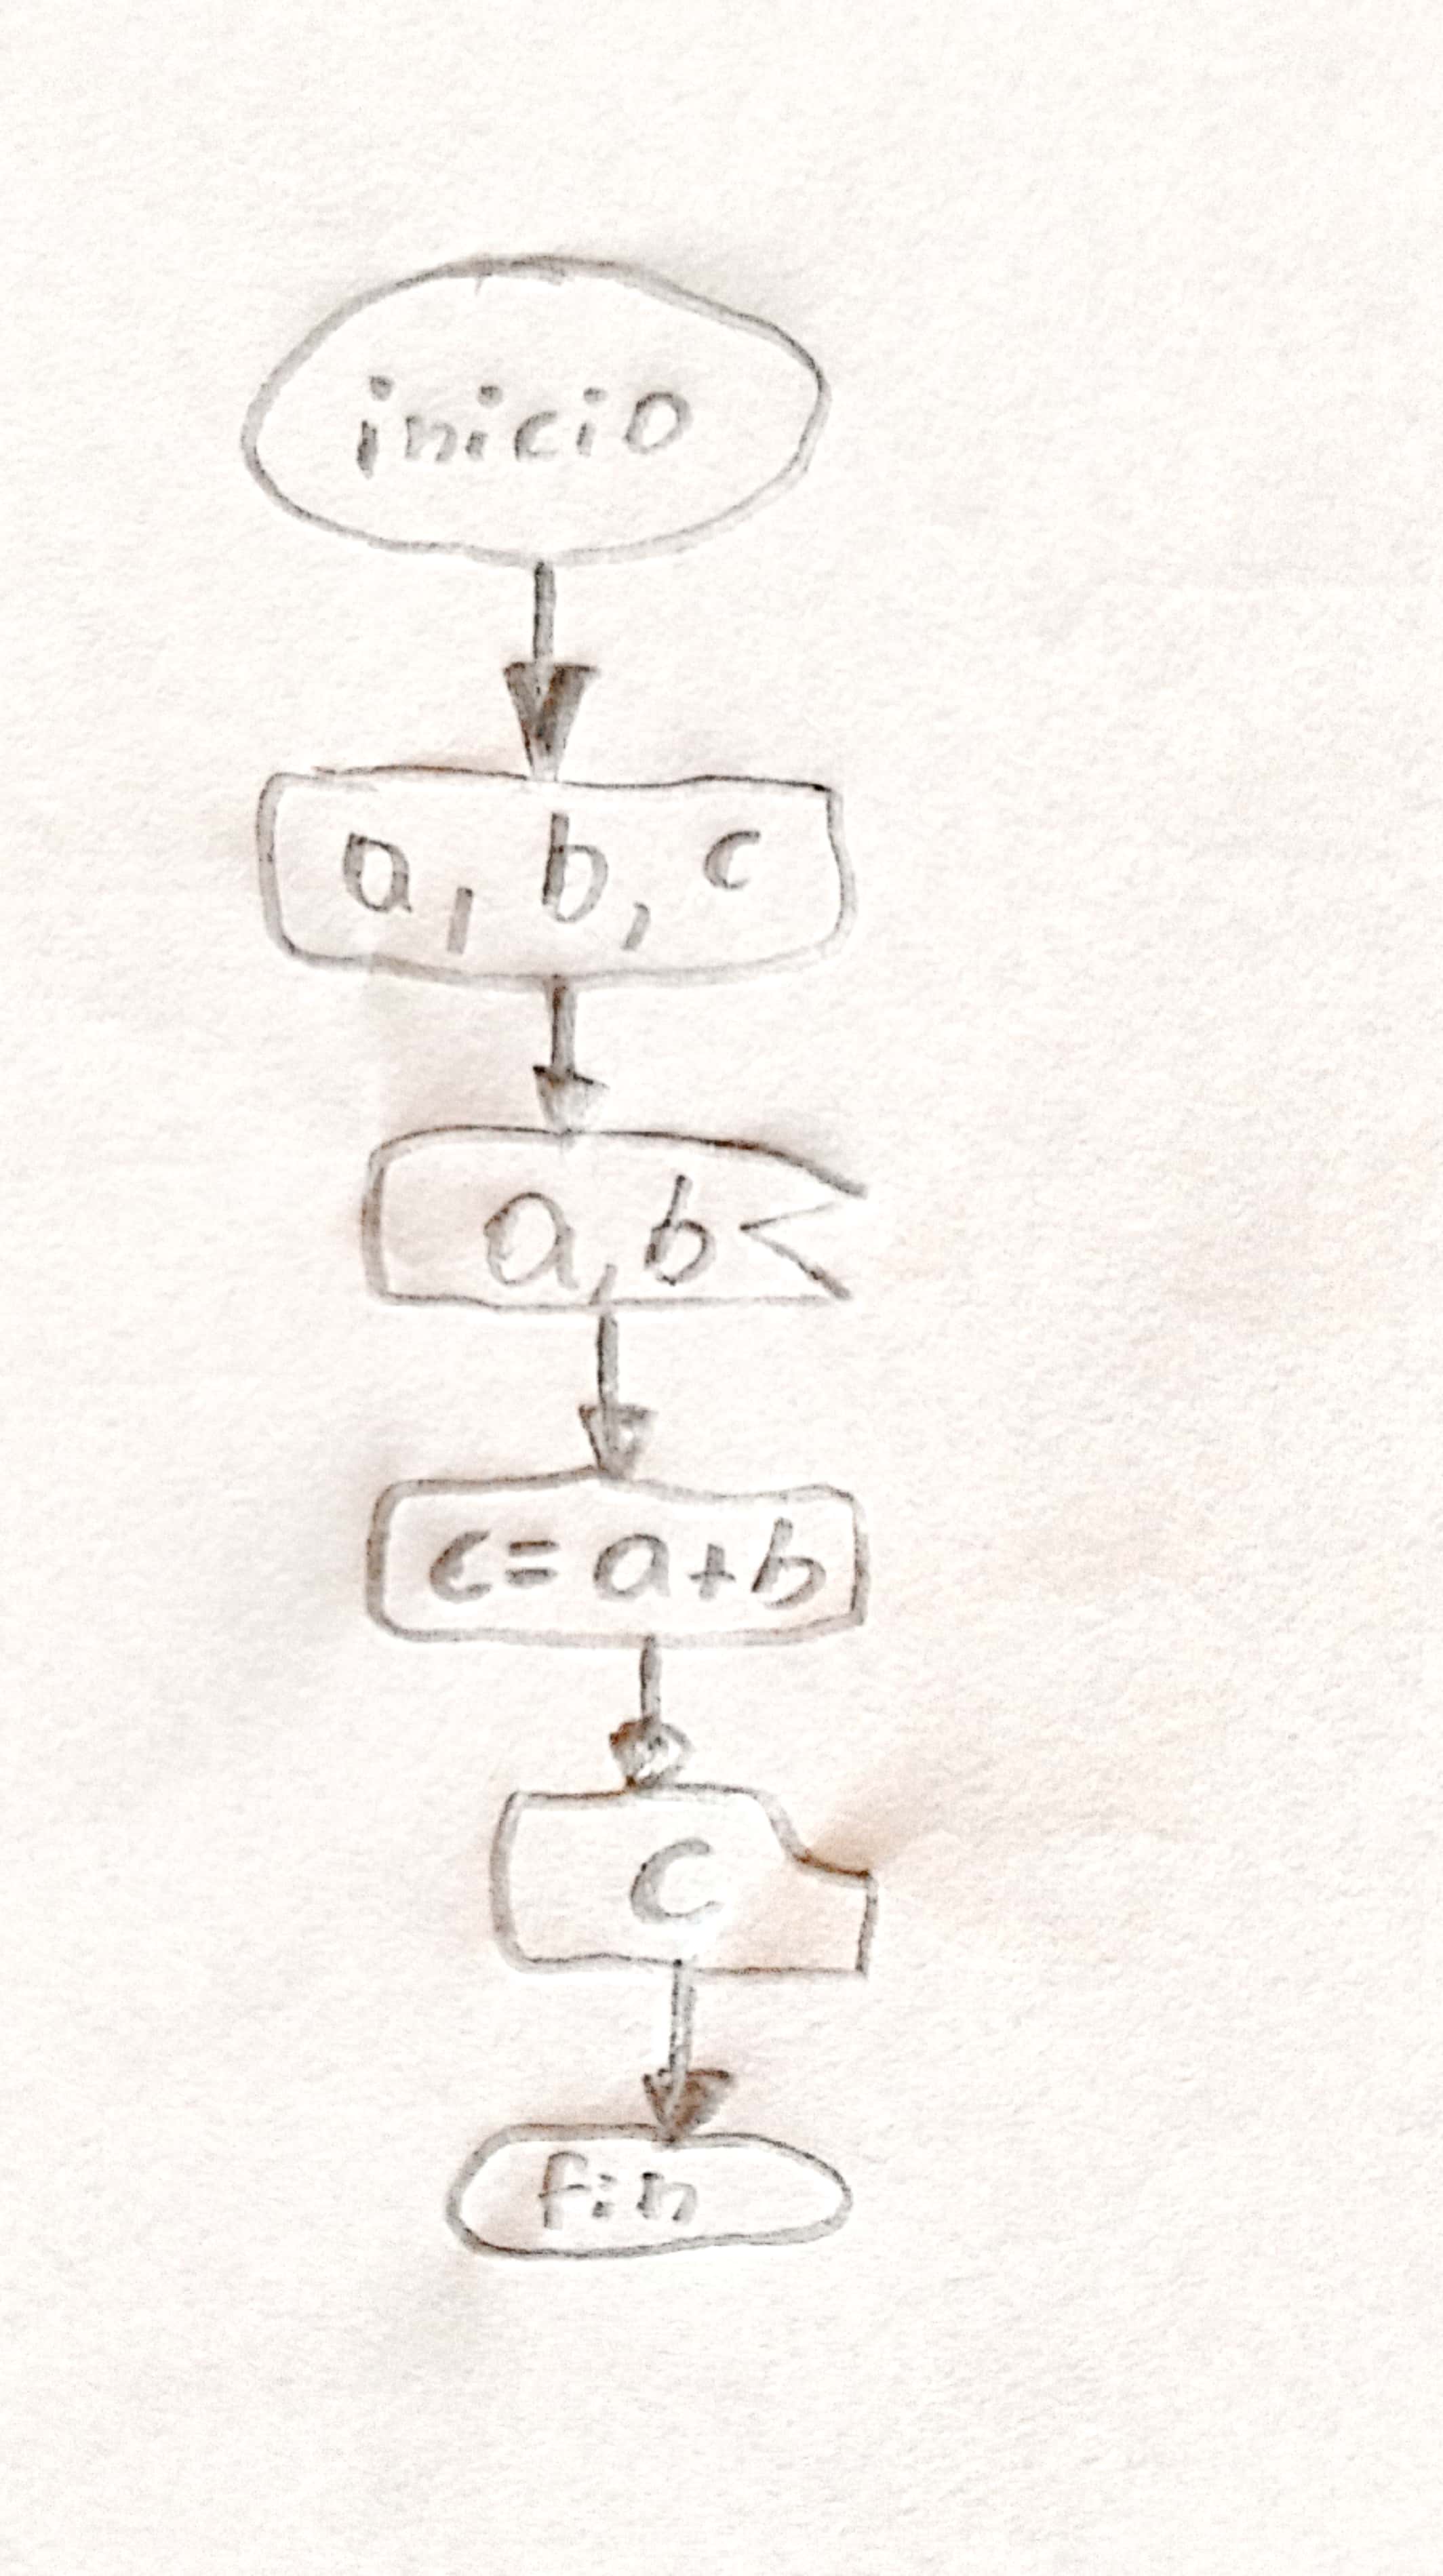 inicio
a, b, c
a, b
c = a + b
c
fin